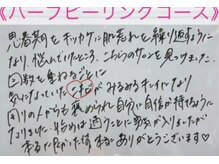 《ハーブピーリングコース》
思春期をキッカケに肌荒れを繰り返すように
なり悩んでいたところ、こちらのサロンを見つけました。
回数を重ねるごとに
気になっていたニキビがみるみるキレイになり
周りの人からも褒められ自分に自信が持てるように
なりました。始めは通うことに勇気が入りましたが
本当に良かった
本当にありがとうございます♡